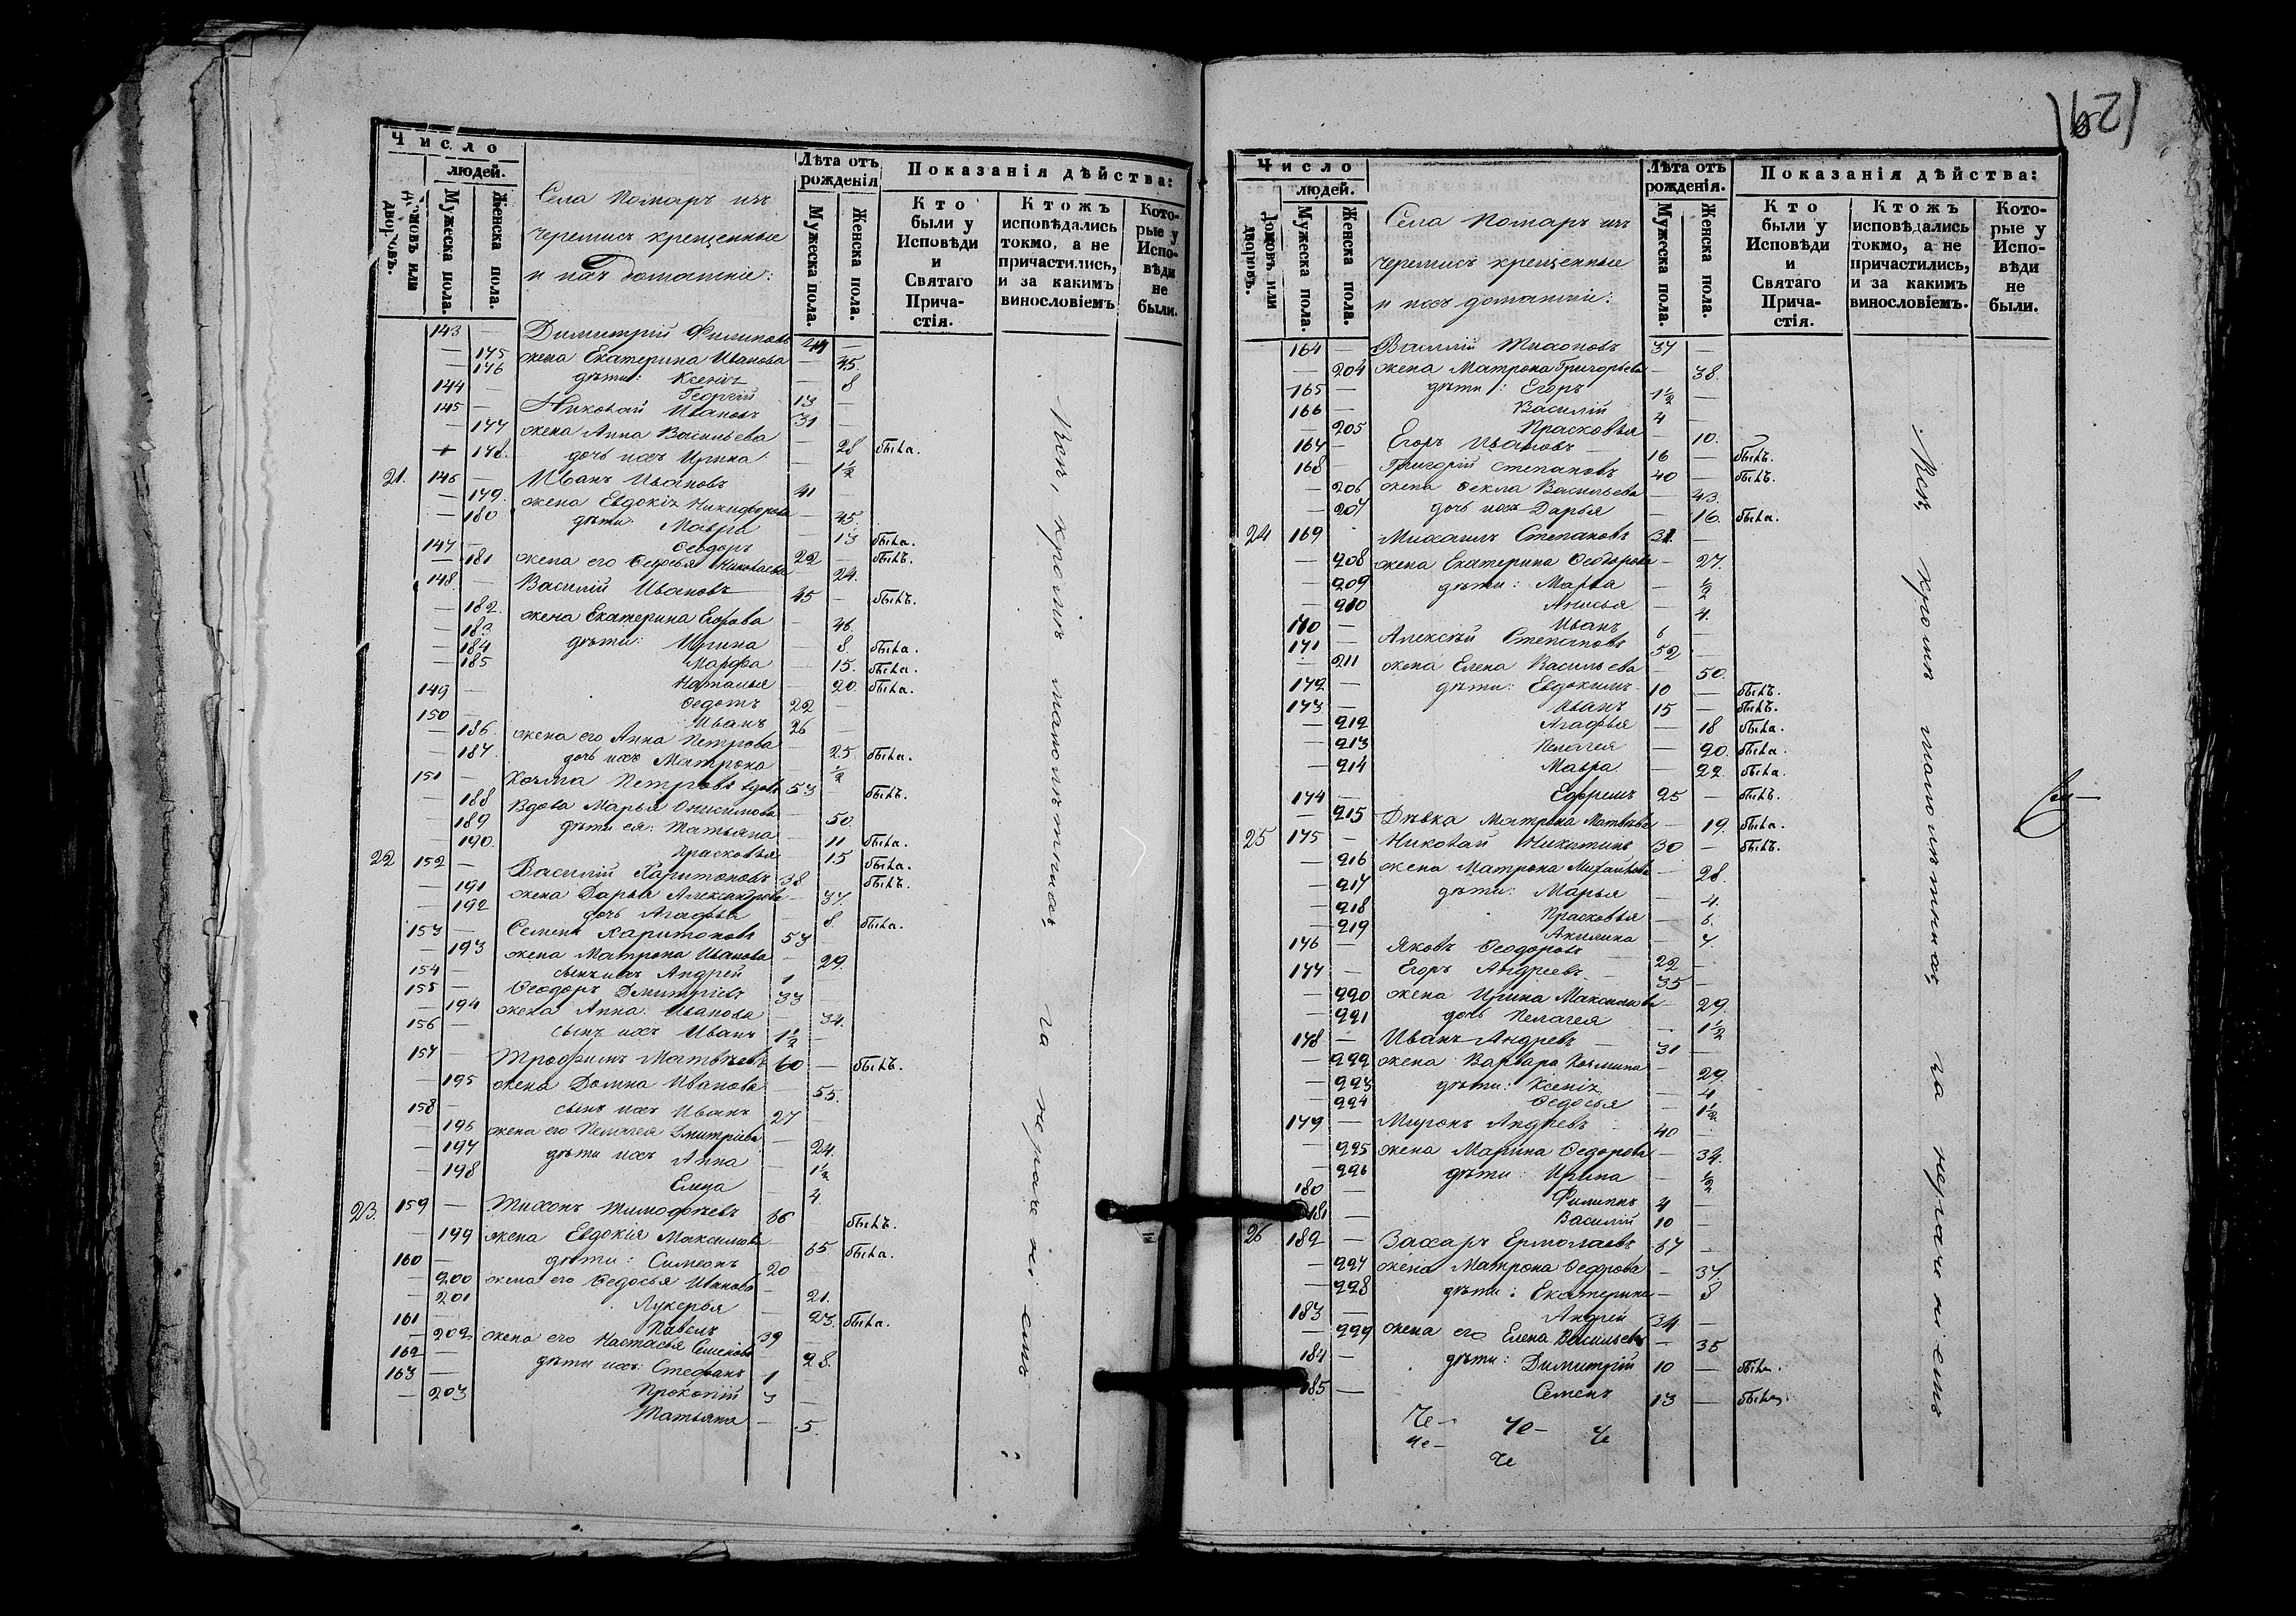 Число
людей.
Домовъ или дворовъ.
Мужеска пола.
Женска пола.
Села Потаръ изъ
черемисъ крещенные
и ихъ домашніе:
Лѣта отъ рожденія
Мужеска пола.
Женска пола.
Показанія дѣйства:
Кто были у Исповѣди и Святаго Причастія.
Ктожъ исповѣдались токмо, а не причастились, и за какимъ винословіемъ
Которые у Исповѣди не были.
143 — Димитрій Филиповъ —
— 175 жена Екатерина Иванова — 45.
— 176 дѣти: Ксенія — 8
144 — Георгій 13 —
145 — Николай Ивановъ 31 —
— 177 жена Анна Васильева — 28 была.
178. дочь ихъ Ирина — 1½
21. 146 — Иванъ Ивановъ 41 —
— 179. жена Евдокія Никифорова — 45.
— 180 дѣти: Мавра — 13 была.
147 — Ѳеодоръ 22 — былъ.
— 181 жена его Ѳедосья Николаева — 24.
148. — Василій Ивановъ 45 — былъ.
— 182. жена Екатерина Егорова — 46.
— 183 дѣти: Ирина — 8. была.
— 184 Марфа — 15. была.
— 185 Наталья — 20. была.
149 — Ѳедотъ 22 —
150 — Иванъ 26 —
— 186. жена его Анна Петрова — 25 была.
— 187. дочь ихъ Матрона — ½
151 — Козма Петровъ вдовъ 53 — былъ.
— 188 Вдова Марья Онисимова — 50.
— 189 дѣти ея: Татьяна — 11 была.
— 190. Прасковья — 15 была.
22 152 — Василій Харитоновъ 38 былъ.
— 191 жена Дарья Александрова — 37.
— 192 дочь Агафья — 8. была.
153 — Семенъ Харитоновъ 53
— 193 жена Матрона Иванова — 29.
154 — сынъ ихъ Андрей 1
155 — Ѳеодоръ Дмитріевъ 33
— 194 жена Анна Иванова — 34.
156 — сынъ ихъ Иванъ 1½ —
157 — Трофимъ Матвѣевъ 60 — былъ.
— 195 жена Домна Иванова — 55.
158 — сынъ ихъ Иванъ 27
— 196 жена его Пелагея Дмитріева — 24.
— 197 дѣти ихъ Анна — 1½
— 198 Елена — 4.
23. 159 — Тихонъ Тимофѣевъ 66 былъ.
— 199 жена Евдокія Максимова 65 была.
160 — дѣти: Симеонъ 20
— 200 жена его Ѳедосья Иванова — 21.
— 201 Лукерья — 23. была.
161 — Павелъ 39
— 202 жена его Настасья Семенова — 28.
162 — дѣти ихъ: Стефанъ 1
163 — Прокопій 3 —
— 203 Татьяна — 5.
Всѣ, кромѣ малолѣтныхъ,
Число
людей.
Домовъ или дворовъ.
Мужеска пола.
Женска пола.
Села Потаръ изъ
черемисъ крещенные
и ихъ домашніи:
Лѣта отъ рожденія.
Мужеска пола.
Женска пола.
Показанія дѣйства:
Кто были у Исповѣди и Святаго Причастія.
Ктожъ исповѣдались токмо, а не причастились, и за какимъ винословіемъ.
Которые у Исповѣди не были.
164 — Василій Тихоновъ 37 —
— 204 жена Матрона Григорьева — 38.
165 — дѣти: Егоръ 1½ —
166 — Василій 4 —
— 205 Прасковья — 10.
167 — Егоръ Ивановъ 16 — былъ.
168 — Григорій Степановъ 40 — былъ.
— 206 жена Ѳекла Васильева — 43.
— 207 дочь ихъ Дарья — 16. была.
24 169 Михаилъ Степановъ 31. —
— 208 жена Екатерина Ѳеодорова — 27.
— 209 дѣти: Марья — ½
— 210 Анисья — 4.
170 — Иванъ 6 —
171 — Алексѣй Степановъ 52 —
— 211 жена Елена Васильева — 50.
172 — дѣти: Евдокимъ 10 — былъ.
173 — Иванъ 15 — былъ.
— 212 Агафья — 18 была.
— 213 Пелагея — 20. была.
— 214 Мавра — 22. была.
174 — Ефремъ 25 — былъ.
— 215 Дѣвка Матрона Матвѣева — 19. была.
25 175 — Николай Никитинъ 30 — былъ.
— 216 жена Матрона Михайлова — 28.
— 217 дѣти: Марья — 4.
— 218 Прасковья — 6.
— 219 Акилина — 7.
176 — Яковъ Ѳеодоровъ 22 —
177 — Егоръ Андреевъ 35 —
— 220 жена Ирина Максимова — 29.
— 221 дочь Пелагея — 1½
178 — Иванъ Андревъ 31 —
— 222 жена Варвара Козмина — 29.
— 223 дѣти: Ксенія — 4
— 224 Ѳедосья — 1½
179 — Миронъ Андревъ 40 —
— 225 жена Марина Ѳедорова — 34.
— 226 дѣти: Ирина — ½
180 — Филиппъ 4 —
181 — Василій 10 —
26 182 — Захаръ Ермолаевъ 67 —
— 227 жена Матрона Ѳедорова — 37.
— 228 дѣти: Екатерина — 8
183 — Андрей 34 —
— 229 жена его Елена Васильева — 35
184 — дѣти: Димитрій 10 —
185 — Семенъ 13 —
Че— Че— Че
Че— Че
Всѣ, кромѣ малолѣтныхъ,